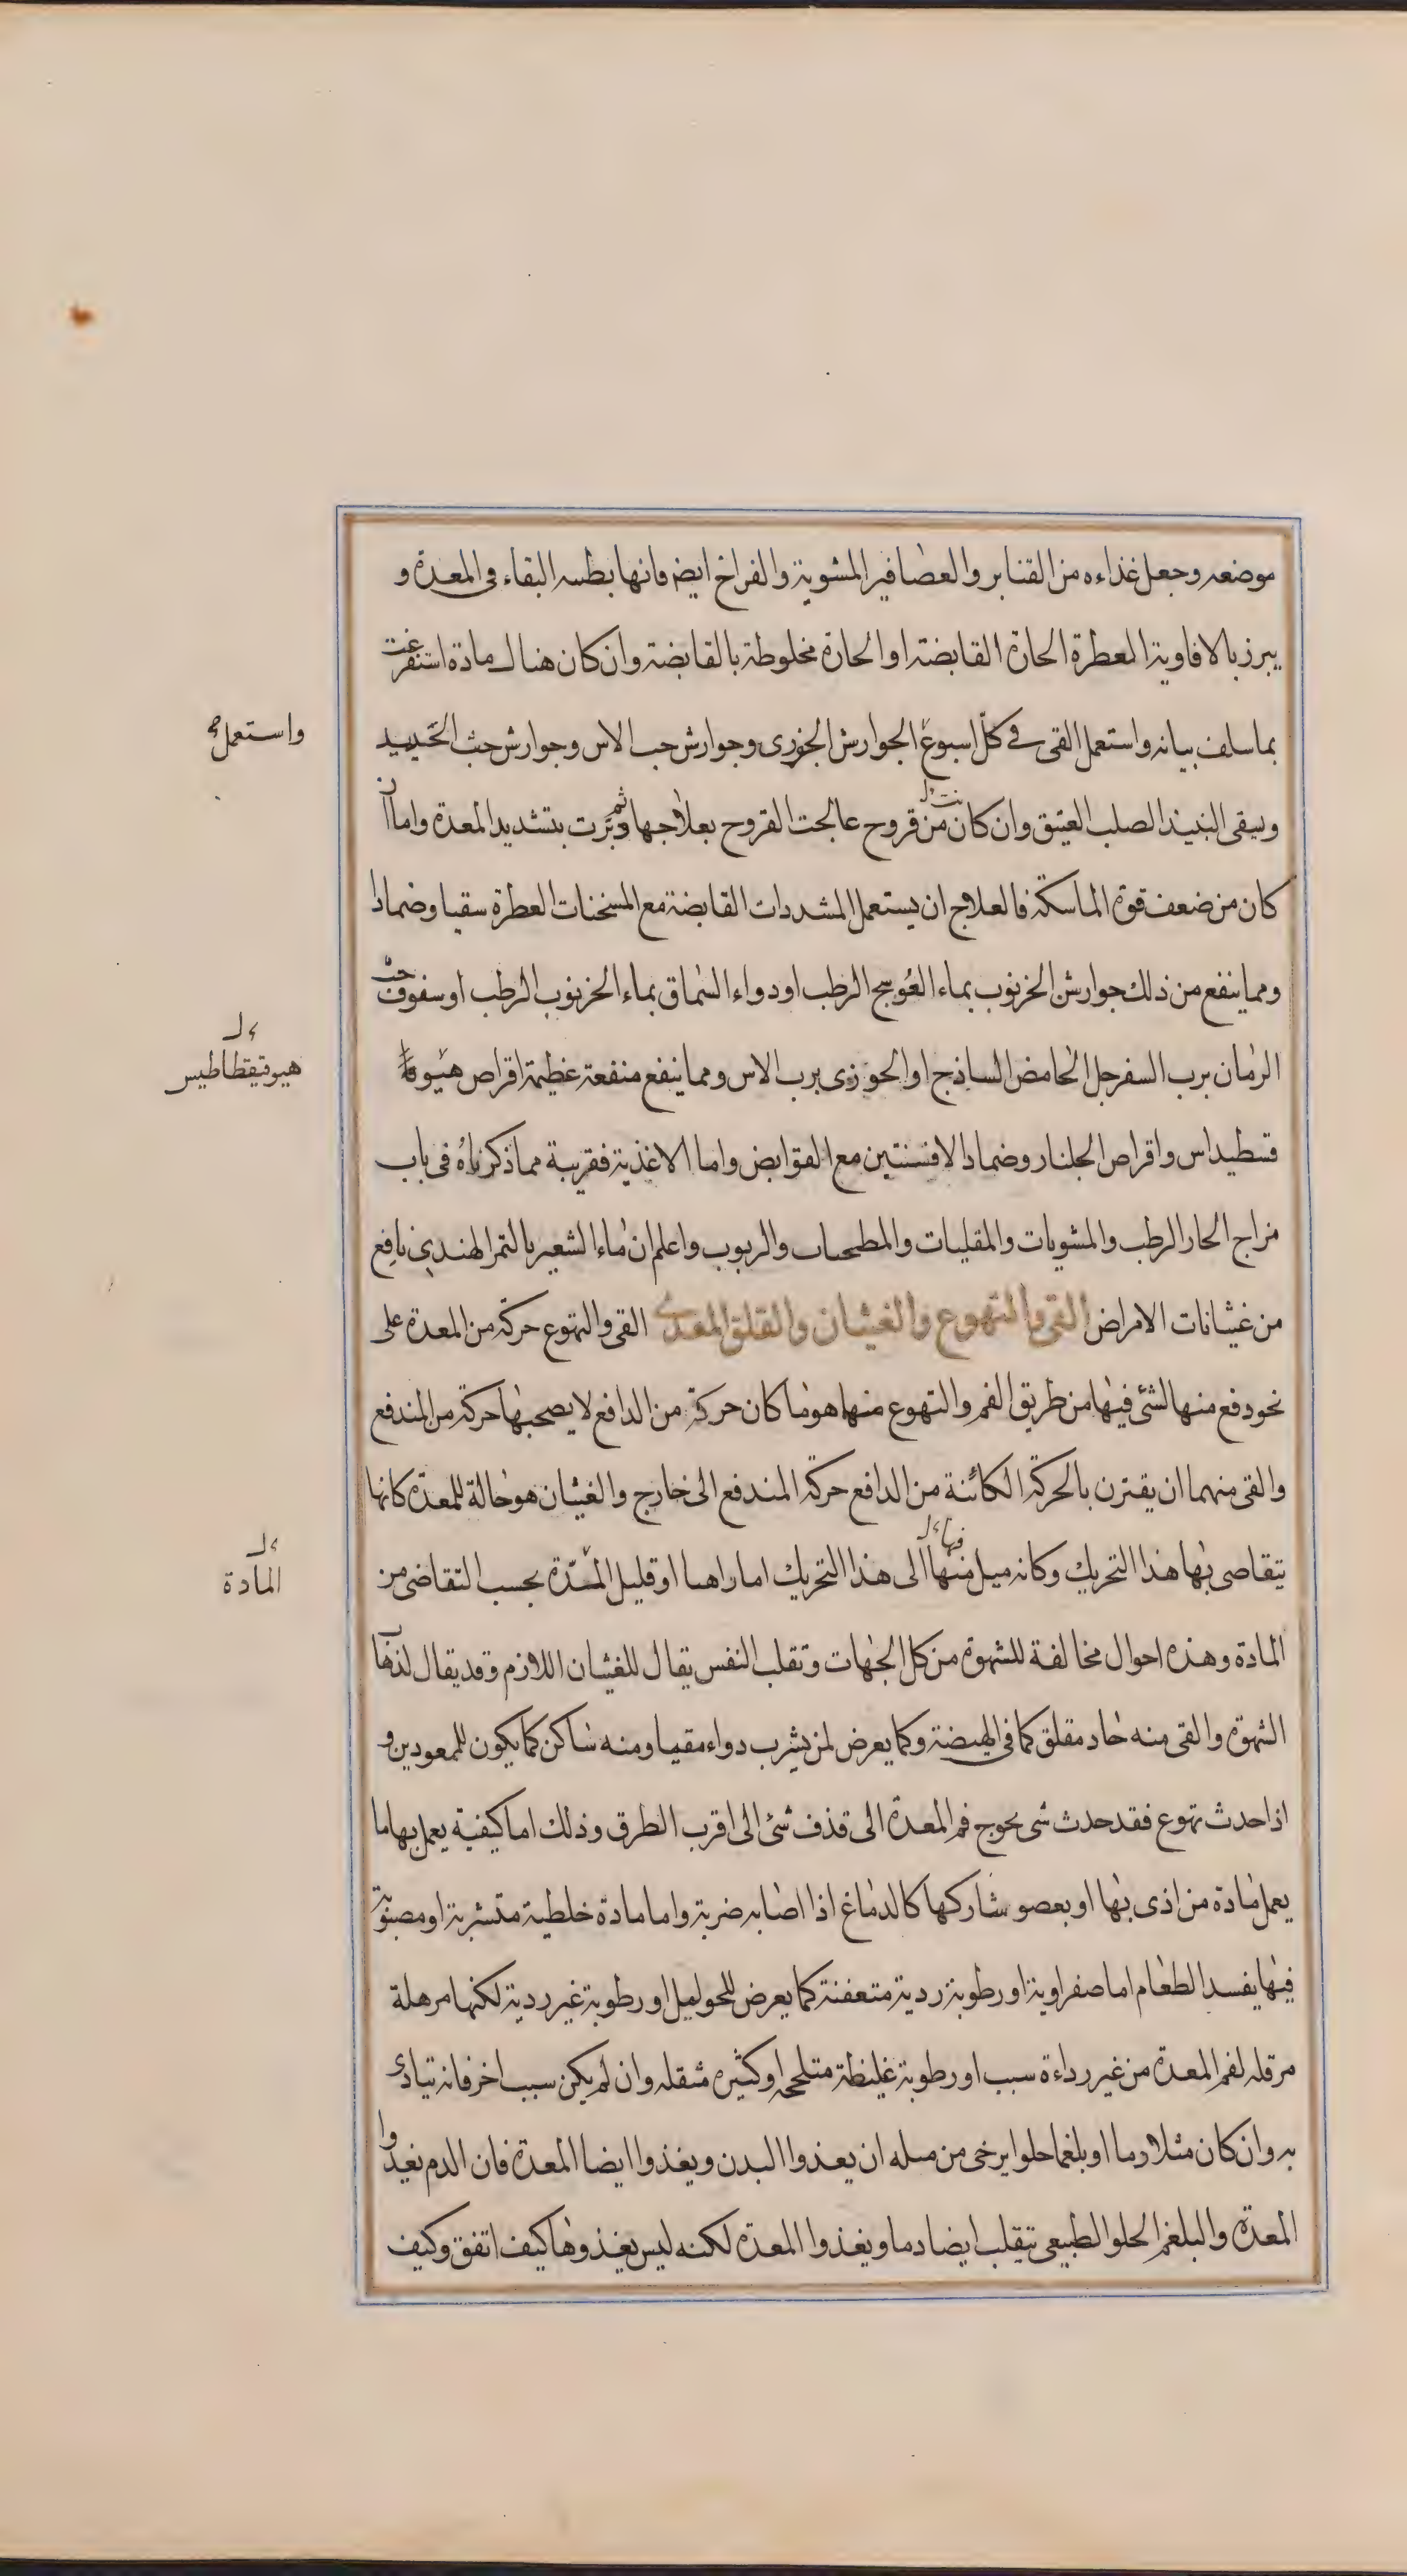 موضعه وجعل غذاءه من القنابر والعصافير المشوية والفراخ ايضا فانها بطيئة البقاء فى المعدة و
يبرز بالافاوية العطرة الحارة القابضة او الحارة مخلوطة بالقابضة وان كان هناك مادة استفرغت
بما سلف بيانه واستعمل القى فى كل اسبوع الجوارش الجوزى وجوارش حب الاس وجوارش خبث الحديد
واستعمل
ويسقى النبيذ الصلب العتيق وان كان من قروح عالجت القروح بعلاجها ثم دبرت بتشديد المعدة واما ان
كان من ضعف قوة الماسكة فالعلاج ان يستعمل المشددات القابضة مع المسخنات العطرة سقيا وضمادا
ومما ينفع من ذلك جوارش الخرنوب بماء العوسج الرطب او دواء السماق بماء الخرنوب الرطب او سفوف حب
الرمان برب السفرجل الحامض الساذج او الحوزى برب الاس ومما ينفع منفعة عظيمة اقراص هيوفا
هيوفيقطاطيس
قسطيداس واقراص الجلنار وضماد الافسنتين مع القوابض واما الاغذية فقريبة مما ذكرناه فى باب
مزاج الحار الرطب والمشويات والمقليات والمطجنات والربوب واعلم ان ماء الشعير بالتمر الهندى نافع
من غثيانات الامراض القى والتهوع والغثيان والقلق المعدى القى والتهوع حركة من المعدة على
نحو دفع منها لشئ فيها من طريق الفم والتهوع منها هو ما كان حركة من الدافع لا يصحبها حركة من المندفع
والقى منهما ان يقترن بالحركة الكائنة من الدافع حركة المندفع الى خارج والغثيان هو حالة للمعدة كانها
تتقاضى بها هذا التحريك وكانه ميل منها الى هذا التحريك اما راهنا او قليل المدة بحسب التقاضى من
فيها
المادة
المادة وهذه احوال مخالفة للشهوة من كل الجهات وتقلب النفس يقال للغثيان اللازم وقد يقال لذهاب
الشهوة والقى منه حاد مقلق كما فى الهيضة وكما يعرض لمن يشرب دواء مقيا ومنه ساكن كما يكون للممعودين و
اذا حدث تهوع فقد حدث شى يحوج فم المعدة الى قذف شئ الى اقرب الطرق وذلك اما كيفية يعمل بها ما
يعمل مادة من اذى بها او بعضو شاركها كالدماغ اذا اصابه ضربة واما مادة خلطية متشربة او مصبوبة
فيها يفسد الطعام اما صفراوية او رطوبة ردية متعفنة كما يعرض للحوامل او رطوبة غير ردية لكنها مرهلة
مرقله لفم المعدة من غير رداءة سبب او رطوبة غليظة متلحجه او كثيره مثقله وان لم يكن سبب اخر فانه تيادى
به وان كان مثلا دما او بلغما حلوا يرجى من مثله ان يغذوا البدن ويغذوا ايضا المعدة فان الدم يغذوا
المعدة والبلغم الحلو الطبيعى يتقلب ايضا دما ويغذوا المعدة لكنه ليس يغذوها كيف اتفق وكيف